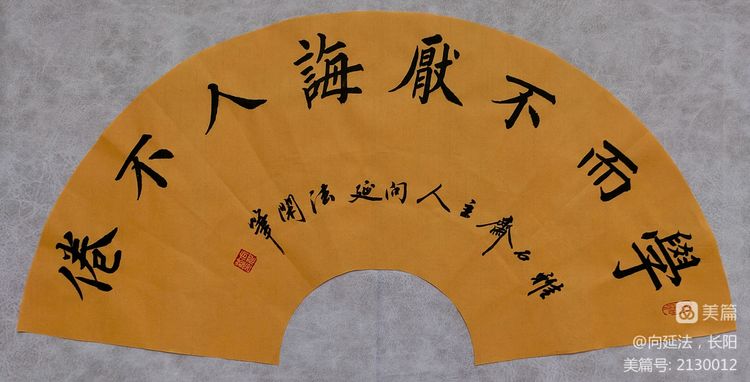 學而不厭誨人不倦
雅石齋主人向延法開筆
美篇
@向延法，长阳
美篇号: 2130012